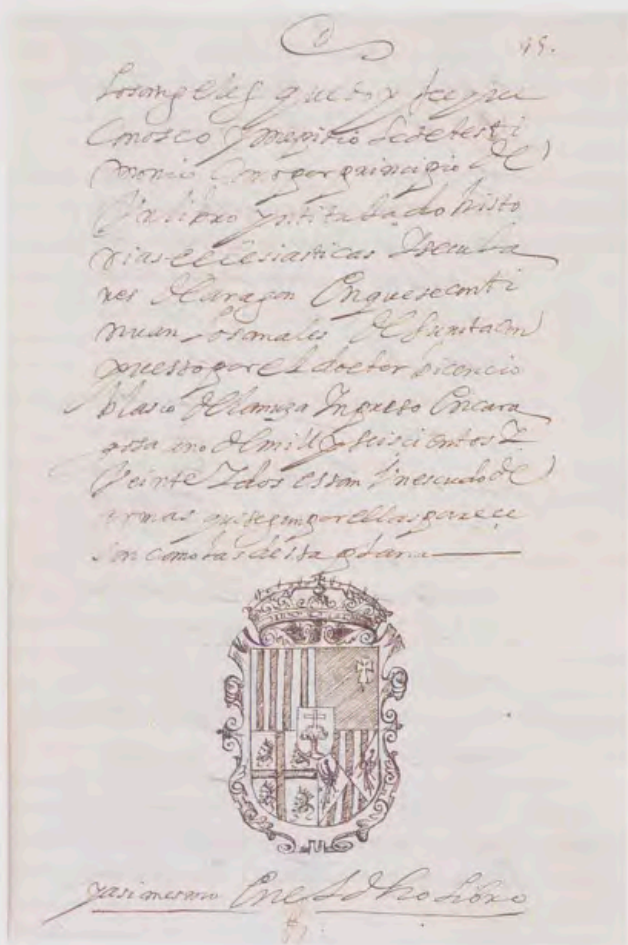 95.
los angeles que doy fee que
Conosco y me pidio le de testi
monio Como por prinçipio de
Un libro yntitulado histo
rias ecclesiasticas Y secula
res de aragon En que se conti
nuan los anales de surita con
puesto por el doctor bicencio
blasco de lanuza Inpreso En cara
gosa año de mill y seiscientos Y
Veinte Y dos estan Un escudo de
armas que segun por ellas parece
son como las desta plana
y asi mesmo En el dho Libro